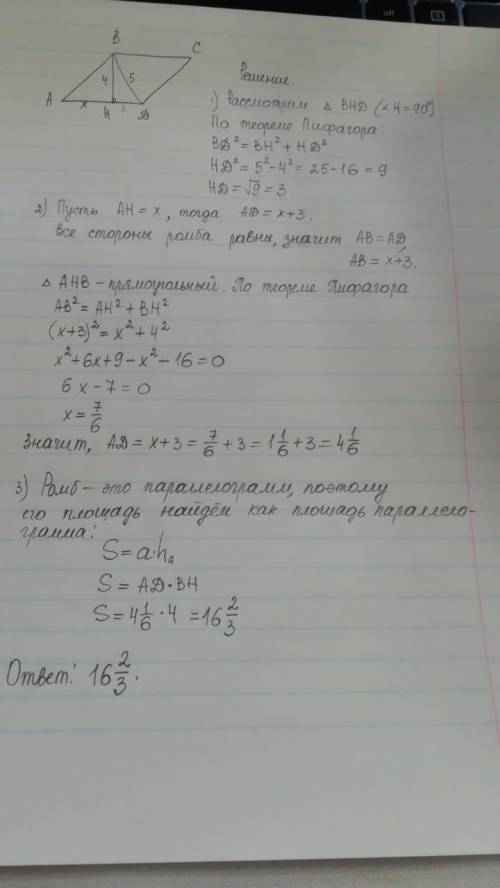 B
C
4
5
A
x
H
3
D
Решение.
1) Рассмотрим △ BHD (∠H=90°)
По теореме Пифагора:
BD² = BH² + HD²
HD² = 5² - 4² = 25 - 16 = 9
HD = √9 = 3
2) Пусть AH = x, тогда AD = x+3.
Все стороны ромба равны, значит AB = AD
AB = x+3.
△ AHB - прямоугольный. По теореме Пифагора
AB² = AH² + BH²
(x+3)² = x² + 4²
x² + 6x + 9 - x² - 16 = 0
6x - 7 = 0
x = 7/6
Значит, AD = x+3 = 7/6 + 3 = 1 1/6 + 3 = 4 1/6
3) Ромб - это параллелограмм, поэтому
его площадь найдём как площадь параллело-
грамма:
S = a·hₐ
S = AD·BH
S = 4 1/6 · 4 = 16 2/3
Ответ: 16 2/3.